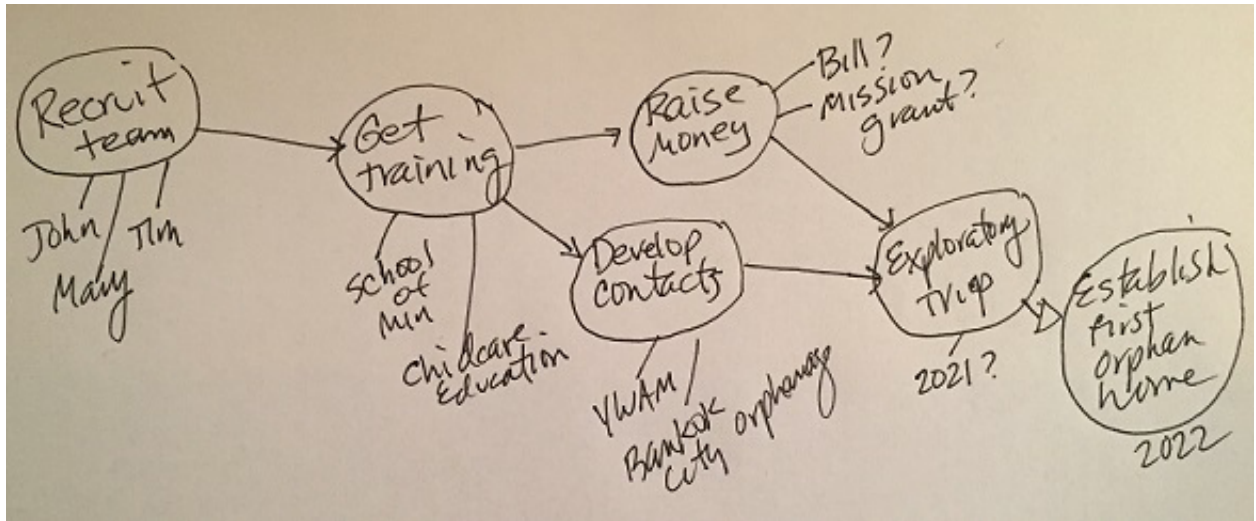 Recruit
team
John
Mary
Tim
Get
training
school
of
Min
Childcare
Education
Raise
Money
Bill?
Mission
grant?
Develop
contacts
YWAM
Bankok
City orphanage
Exploratory
Trip
2021?
Establish
first
orphan
home
2022